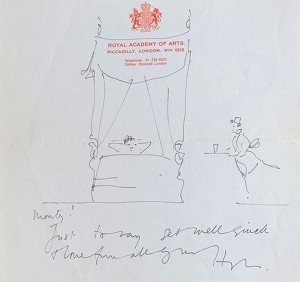 ROYAL ACADEMY OF ARTS.
PICCADILLY, LONDON, W1V 0DS
Telephone 01-734 9052
Cables Royacad London
Just to say get well quick
& love from all